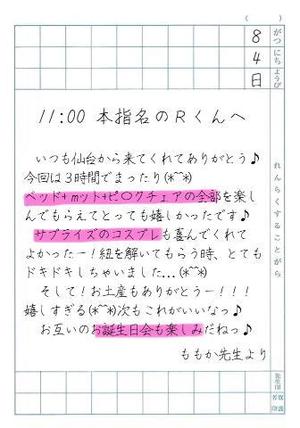 (　　)
がつ にち ようび
8
4
日
11:00 本指名のRくんへ
いつも仙台から来てくれてありがとう♪
今回は3時間でまったり(*^^*)
ベッド+mット+ピ〇クチェアの全部を楽し
んでもらえてとっても嬉しかったです♪
サプライズのコスプレも喜んでくれて
よかったー!紐を解いてもらう時、とても
ドキドキしちゃいました...(*^^*)
そして!お土産もありがとうー!!!
嬉しすぎる(*^^*)次もこれがいいなっ♪
お互いのお誕生日会も楽しみだねっ♪
ももか先生より
れんらくすることがら
先生印